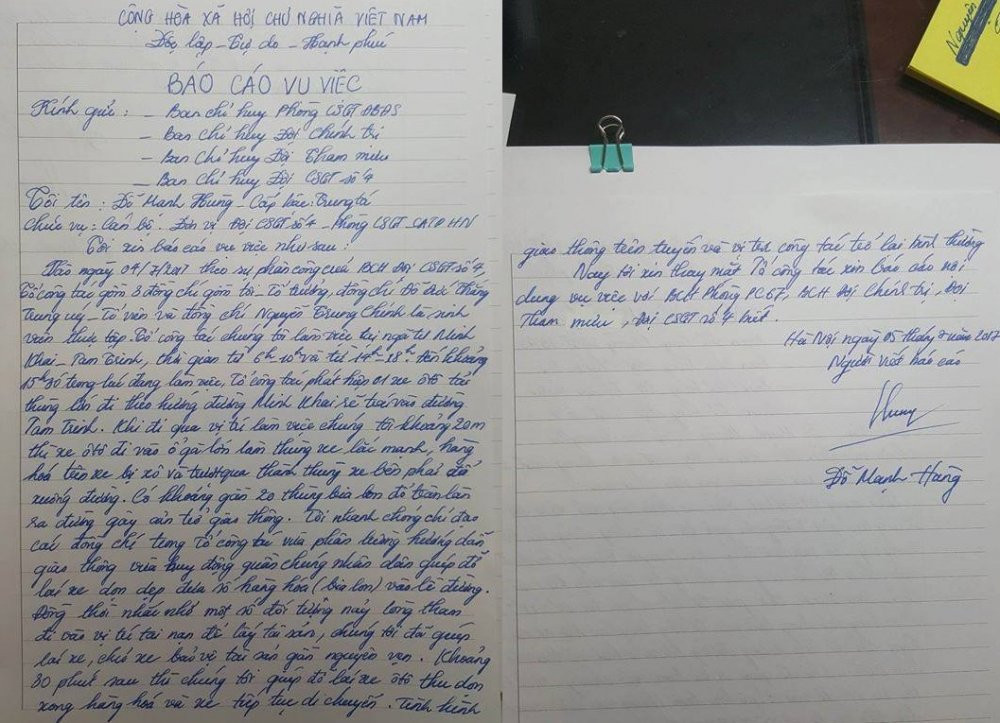 CỘNG HÒA XÃ HỘI CHỦ NGHĨA VIỆT NAM
Độc lập - Tự do - Hạnh phúc
BÁO CÁO VỤ VIỆC
Kính gửi : - Ban chỉ huy Phòng CSGT ĐBĐS
- Ban chỉ huy Đội Chính trị
- Ban Chỉ huy Đội Tham mưu
- Ban Chỉ huy Đội CSGT số 4
Tôi tên : Đỗ Mạnh Hùng - Cấp bậc : Trung tá
Chức vụ : Cán bộ. Đơn vị Đội CSGT số 4 - Phòng CSGT - CATP HN
Tôi xin báo cáo vụ việc như sau :
Vào ngày 04/7/2017 theo sự phân công của BCH Đội CSGT số 4,
Tổ công tác gồm 3 đồng chí gồm tôi - Tổ trưởng, đồng chí Đỗ Đức Thắng
Trung uý - Tổ viên và đồng chí Nguyễn Trung Chính là sinh
viên thực tập. Tổ công tác chúng tôi làm việc tại ngã tư Minh
Khai - Tam Trinh, thời gian từ 6h - 10h và từ 14h - 18h. Đến khoảng
15h30 trong lúc đang làm việc, Tổ công tác phát hiện 01 xe ôtô tải
thùng lớn đi theo hướng đường Minh Khai rẽ trái vào đường
Tam Trinh. Khi đi qua vị trí làm việc chúng tôi khoảng 20m
thì xe ôtô đi vào ổ gà lớn làm thùng xe lắc mạnh, hàng
hóa trên xe bị xô và trượt qua thành thùng xe bên phải đổ
xuống đường. Có khoảng gần 20 thùng bia lon đổ tràn lan
ra đường gây cản trở giao thông. Tôi nhanh chóng chỉ đạo
các đồng chí trong Tổ công tác vừa phân luồng hướng dẫn
giao thông vừa huy động quần chúng nhân dân giúp đỡ
lái xe dọn dẹp đưa số hàng hóa (bia lon) vào lề đường.
Đồng thời nhắc nhở một số đối tượng nảy lòng tham
đi vào vị trí tai nạn để lấy tài sản, chúng tôi đã giúp
lái xe, chủ xe bảo vệ tài sản gần nguyên vẹn. Khoảng
30 phút sau thì chúng tôi giúp đỡ lái xe ôtô thu dọn
xong hàng hoá và xe tiếp tục di chuyển. Tình hình
giao thông trên tuyến và vị trí công tác trở lại bình thường
Nay tôi xin thay mặt Tổ công tác xin báo cáo nội
dung vụ việc với BCH Phòng PC67, BCH Đội Chính trị, Đội
Tham mưu, Đội CSGT số 4 biết.
Hà Nội ngày 05 tháng 7 năm 2017
Người viết báo cáo
Hung
Đỗ Mạnh Hùng
Nguyễn